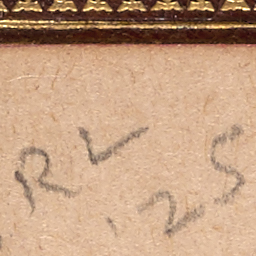 RL .25